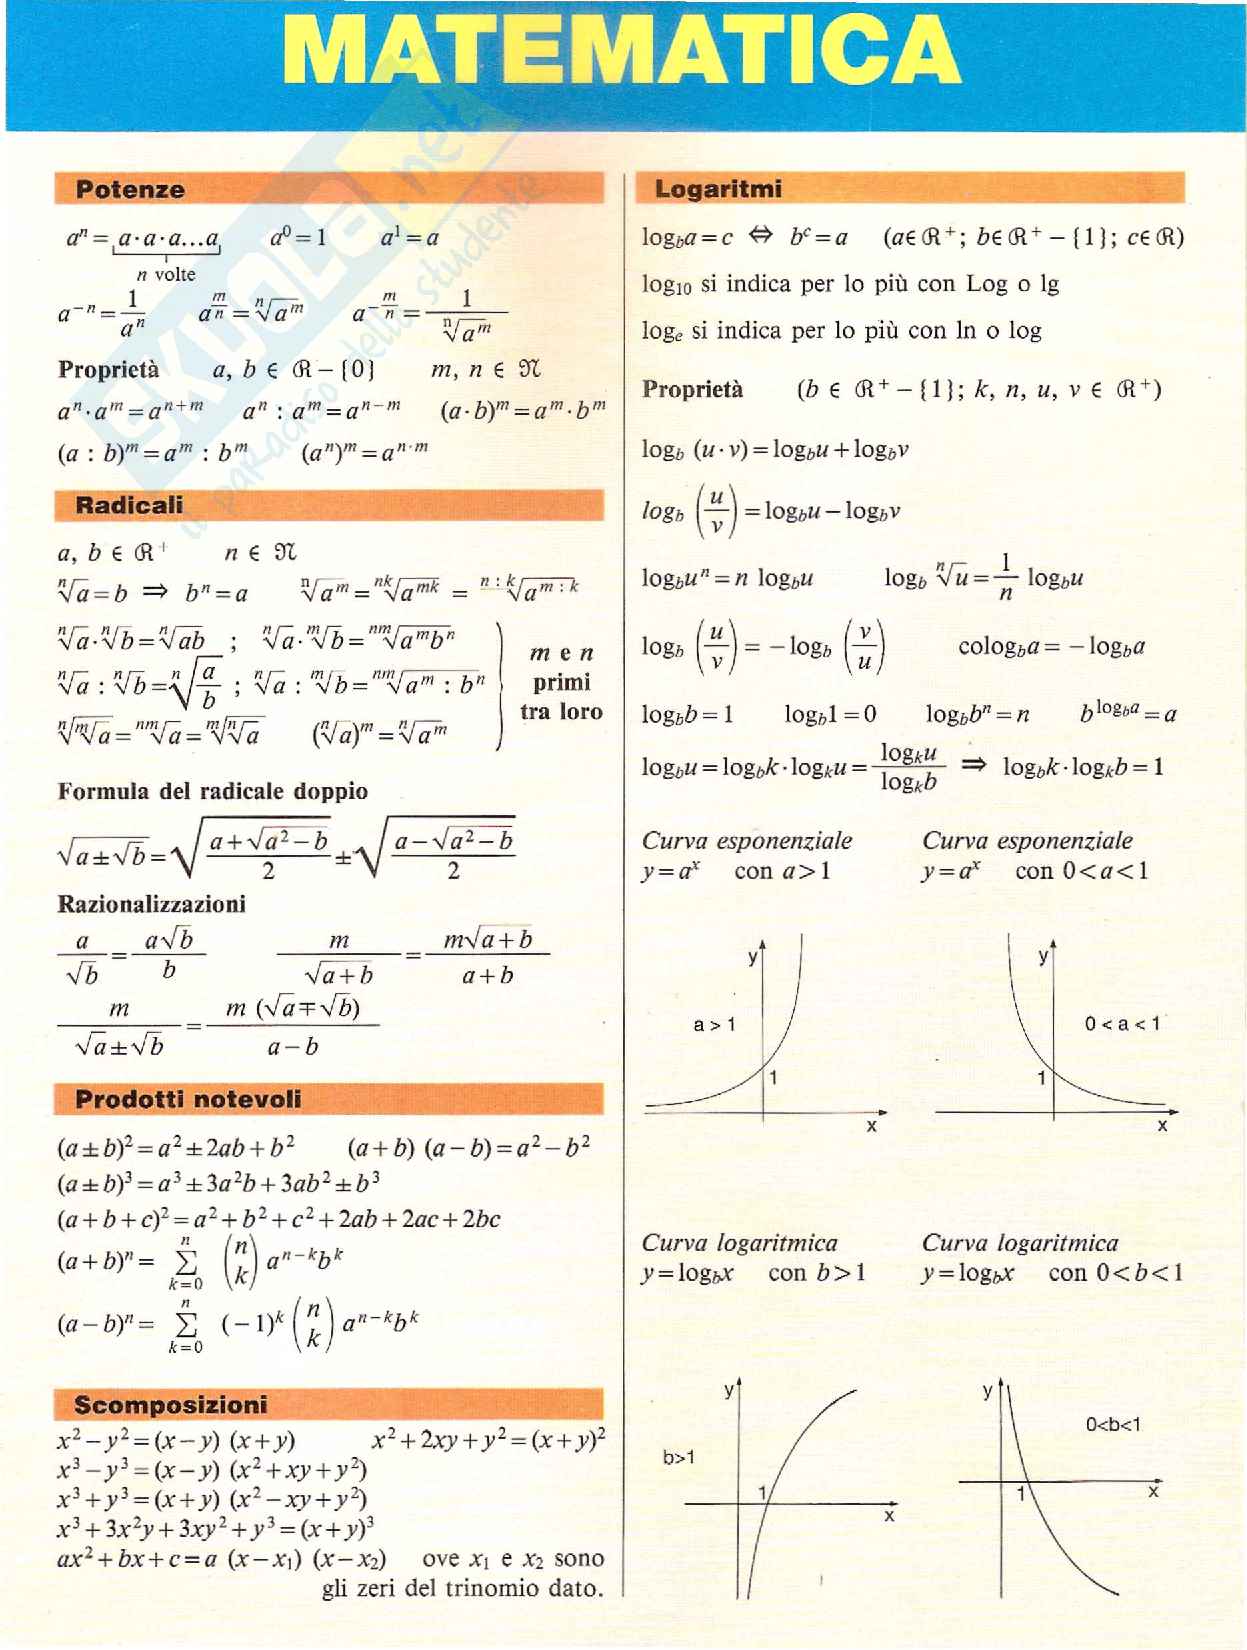 MATEMATICA
SKUOLA.net
il paradiso dello studente
Potenze
aⁿ = a · a · a...a    a⁰ = 1    a¹ = a
n volte
a⁻ⁿ = 1/aⁿ    a^(m/n) = ⁿ√(a^m)    a^(−m/n) = 1/ⁿ√(a^m)
Proprietà    a, b ∈ ℛ − {0}    m, n ∈ 𝔑
aⁿ · a^m = a^(n+m)    aⁿ : a^m = a^(n−m)    (a · b)^m = a^m · b^m
(a : b)^m = a^m : b^m    (aⁿ)^m = a^(n·m)
Radicali
a, b ∈ ℛ⁺    n ∈ 𝔑
ⁿ√a = b ⇒ bⁿ = a    ⁿ√(a^m) = ^(nk)√(a^(mk)) = ^(n:k)√(a^(m:k))
ⁿ√a · ⁿ√b = ⁿ√(ab) ; ⁿ√a · ^m√b = ^(nm)√(a^m bⁿ)
ⁿ√a : ⁿ√b = ⁿ√(a/b) ; ⁿ√a : ^m√b = ^(nm)√(a^m : bⁿ)
ⁿ√(^m√a) = ^(nm)√a = ^m√(ⁿ√a)    (ⁿ√a)^m = ⁿ√(a^m)
m e n
primi
tra loro
Formula del radicale doppio
√(a ± √b) = √((a + √(a² − b))/2) ± √((a − √(a² − b))/2)
Razionalizzazioni
a/√b = a√b/b    m/√(a + b) = m√(a + b)/(a + b)
m/(√a ± √b) = m (√a ∓ √b)/(a − b)
Prodotti notevoli
(a ± b)² = a² ± 2ab + b²    (a + b) (a − b) = a² − b²
(a ± b)³ = a³ ± 3a²b + 3ab² ± b³
(a + b + c)² = a² + b² + c² + 2ab + 2ac + 2bc
(a + b)ⁿ = ∑_(k=0)^n (n k) a^(n−k) b^k
(a − b)ⁿ = ∑_(k=0)^n (−1)^k (n k) a^(n−k) b^k
Scomposizioni
x² − y² = (x − y) (x + y)    x² + 2xy + y² = (x + y)²
x³ − y³ = (x − y) (x² + xy + y²)
x³ + y³ = (x + y) (x² − xy + y²)
x³ + 3x²y + 3xy² + y³ = (x + y)³
ax² + bx + c = a (x − x₁) (x − x₂)    ove x₁ e x₂ sono
gli zeri del trinomio dato.
Logaritmi
log_b a = c ⇔ b^c = a    (a ∈ ℛ⁺; b ∈ ℛ⁺ − {1}; c ∈ ℛ)
log₁₀ si indica per lo più con Log o lg
log_e si indica per lo più con ln o log
Proprietà    (b ∈ ℛ⁺ − {1}; k, n, u, v ∈ ℛ⁺)
log_b (u · v) = log_b u + log_b v
log_b (u/v) = log_b u − log_b v
log_b uⁿ = n log_b u    log_b ⁿ√u = 1/n log_b u
log_b (u/v) = − log_b (v/u)    colog_b a = − log_b a
log_b b = 1    log_b 1 = 0    log_b bⁿ = n    b^(log_b a) = a
log_b u = log_b k · log_k u = log_k u/log_k b ⇒ log_b k · log_k b = 1
Curva esponenziale    Curva esponenziale
y = a^x con a > 1    y = a^x con 0 < a < 1
y    y
a > 1    0 < a < 1
1    1
x    x
Curva logaritmica    Curva logaritmica
y = log_b x con b > 1    y = log_b x con 0 < b < 1
y    y
b>1    0<b<1
1    1
x    x